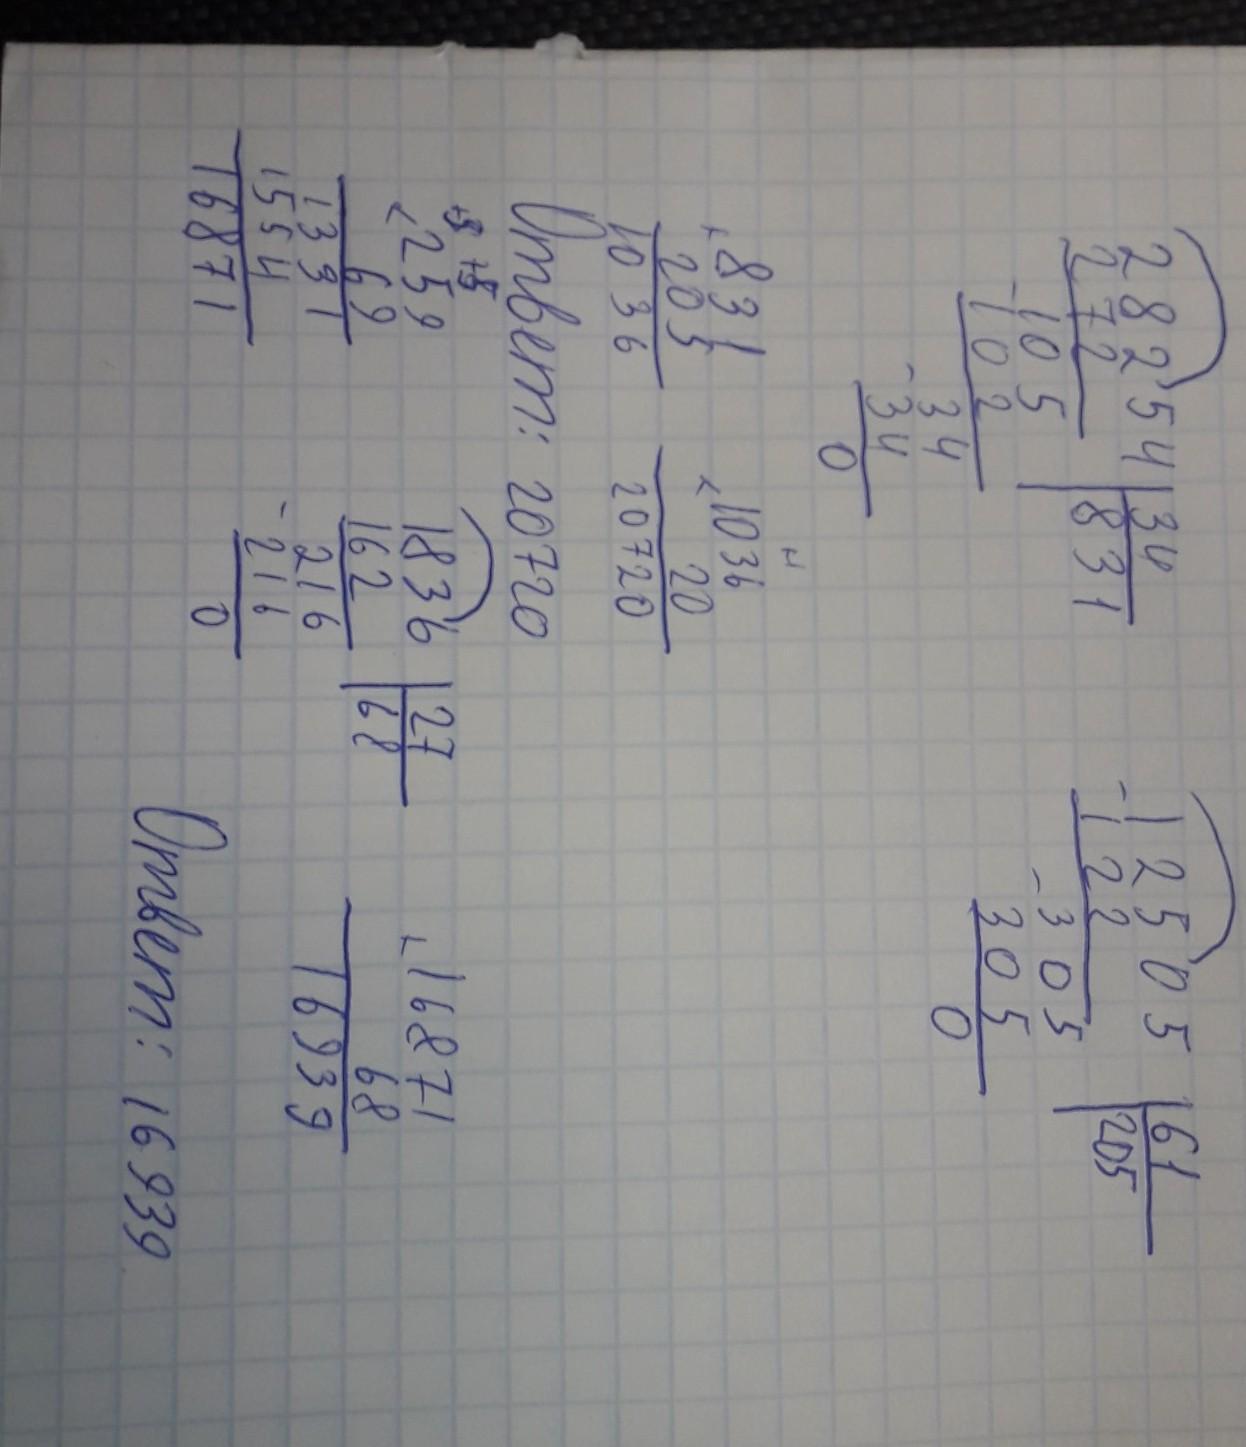 28254 34
272 831
- 105
102
- 34
34
0
- 12505 61
122 205
- 305
305
0
+ 831
205
1036
× 1036
20
20720
Ответ: 20720
+8 +5
× 259
69
1331
1554
16871
1836 27
162 68
- 216
216
0
+ 16871
68
16939
Ответ: 16939